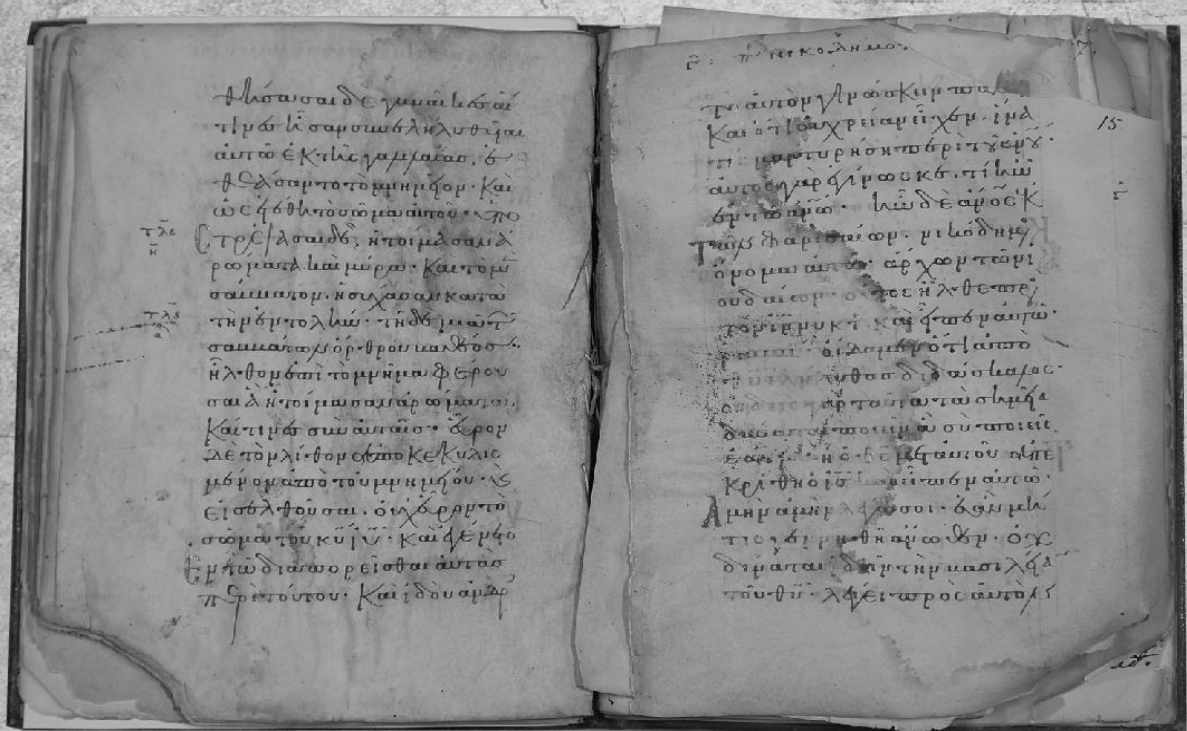 θήσασαι δὲ γυναῖκες αἵ
τινες ἦσαν συνεληλυθυῖαι
αὐτῷ ἐκ τῆς γαλιλαίας. ἐ
θεάσαντο τὸ μνημεῖον. Καὶ
ὡς ἐτέθη τὸ σῶμα αὐτοῦ. ὑπο
στρέψασαι δὲ, ἡτοίμασαν ἀ
ρώματα καὶ μύρα. Καὶ τὸ μ
σάββατον. ἡσύχασαν κατὰ
τὴν ἐντολήν. τῇ δὲ μιᾷ τ
σαββάτων ὄρθρου βαθέος.
ἦλθον ἐπὶ τὸ μνῆμα φέρου
σαι ἃ ἡτοίμασαν ἀρώματα.
Καί τινες σὺν αὐταῖς. εὗρον
δὲ τὸν λίθον ἀποκεκυλισ
μένον ἀπὸ τοῦ μνημείου.
εἰσελθοῦσαι. οὐχ εὗρον τὸ
σῶμα τοῦ κυ ιυ. Καὶ ἐγένετο
ἐν τῷ διαπορεῖσθαι αὐτὰς
περὶ τούτου. Καὶ ἰδοὺ ἄνδρ
π νικοδημο.
7
τε αὐτὸν γινώσκειν
15
Καὶ ὅτι οὐ χρείαν εἶχεν. ἵνα
τις μαρτυρήσῃ περὶ τοῦ
αὐτὸς γὰρ ἐγίνωσκε. τί ἦν
ἐν τῷ ἀνω. ἦν δὲ ανος ἐκ
τῶν φαρισαίων. νικόδημ
ὄνομα αὐτῷ. ἄρχων τῶν ἰ
ουδαίων. οὗτος ἦλθε πρ
τὸν ιν νυκτ καὶ εἶπεν αὐτῷ.
οἴδαμεν ὅτι ἀπὸ
ἐλήλυθας διδάσκαλος.
οὐδεὶς γὰρ ταῦτα τὰ σημεῖα
δύναται ποιεῖν ἃ σὺ ποιεῖ
ἐὰν ᾖ ὁ θς μετ αὐτοῦ ἀπε
κρίθη ὁ ις καὶ εἶπεν αὐτῷ.
Ἀμὴν ἀμὴν λέγω σοι. ἐὰν μή
τις γεννηθῇ ἄνωθεν. οὐ
δύναται ἰδεῖν τὴν βασιλεία
τοῦ θυ. λέγει πρὸς αὐτὸν